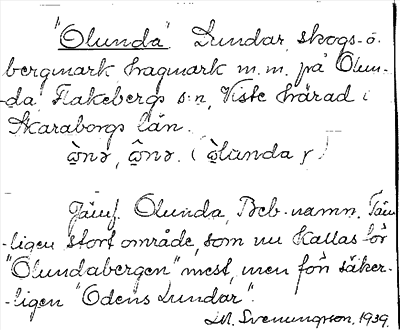 "Olunda" Lundar, skogs- o.
bergmark, hagmark m.m. på Olun-
da, Flakebergs s:n, Viste härad i
Skaraborgs län.
(òlunda
Jämf. Olunda, Beb-namn. Täm-
-ligen stort område, som nu kallas för
"Olundabergen" mest, men förr säker-
-ligen "Odens Lundar".
M. Svenungson, 1939.